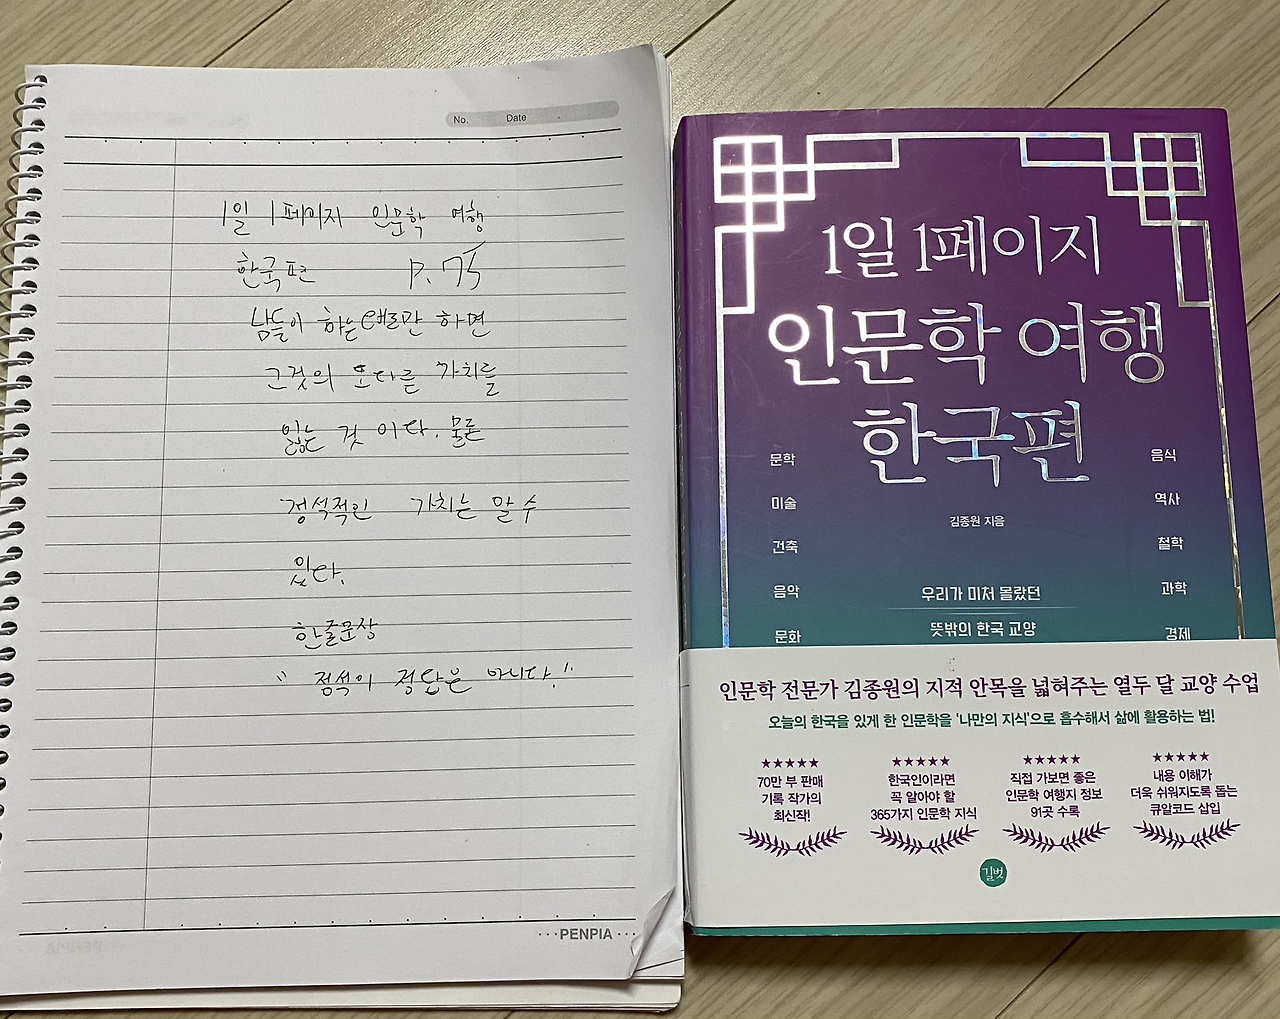 No. Date
1일 1페이지 인문학 여행
한국편 P.75
남들이 하는대로만 하면
그것의 또다른 가치를
잃는 것 이다. 물론
정석적인 가치는 알 수
있다.
한줄문장
"정석이 정답은 아니다."
···PENPIA···
1일 1페이지
인문학 여행
한국편
문학
미술
건축
음악
문화
음식
역사
철학
과학
경제
김종원 지음
우리가 미처 몰랐던
뜻밖의 한국 교양
인문학 전문가 김종원의 지적 안목을 넓혀주는 열두 달 교양 수업
오늘의 한국을 있게 한 인문학을 '나만의 지식'으로 흡수해서 삶에 활용하는 법!
★★★★★
70만 부 판매
기록 작가의
최신작!
★★★★★
한국인이라면
꼭 알아야 할
365가지 인문학 지식
★★★★★
직접 가보면 좋은
인문학 여행지 정보
91곳 수록
★★★★★
내용 이해가
더욱 쉬워지도록 돕는
큐알코드 삽입
길벗